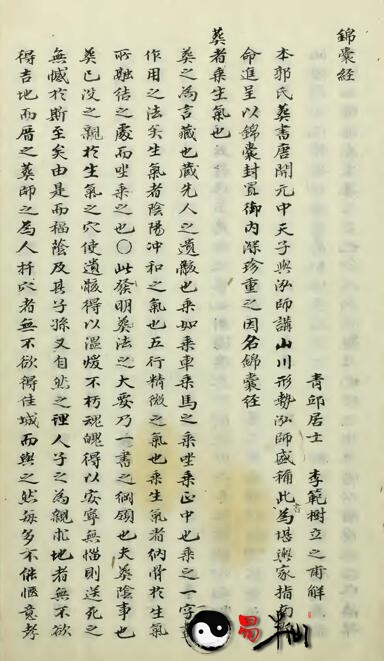 錦囊經
青邱居士 李範樹立之甫解
本郭氏葬書唐開元中天子與泓師講山川形勢泓師盛稱此書為堪輿家指南
命進呈以錦囊封置御內深珍重之因名錦囊經
葬者乘生氣也
葬之為言藏也藏先人之遺骸也乘如乘車乘馬之乘坐乘正中也乘之一字
作用之法矣生氣者陰陽冲和之氣也五行精微之氣也乘生氣者納骨於生氣
所融結之處而坐乘之也〇此發明葬法之大要乃一書之綱領也夫葬陰事也
葬已沒之親於生氣之穴使遺骸得以溫煖不朽魂魄得以安寧無惱則送死之
無憾於斯至矣由是而福蔭及其子孫又自然之理人子之為親求地者無不欲
得吉地而厝之葬師之為人扦穴者無不欲得佳城而與之然每多不侔愜意者
易